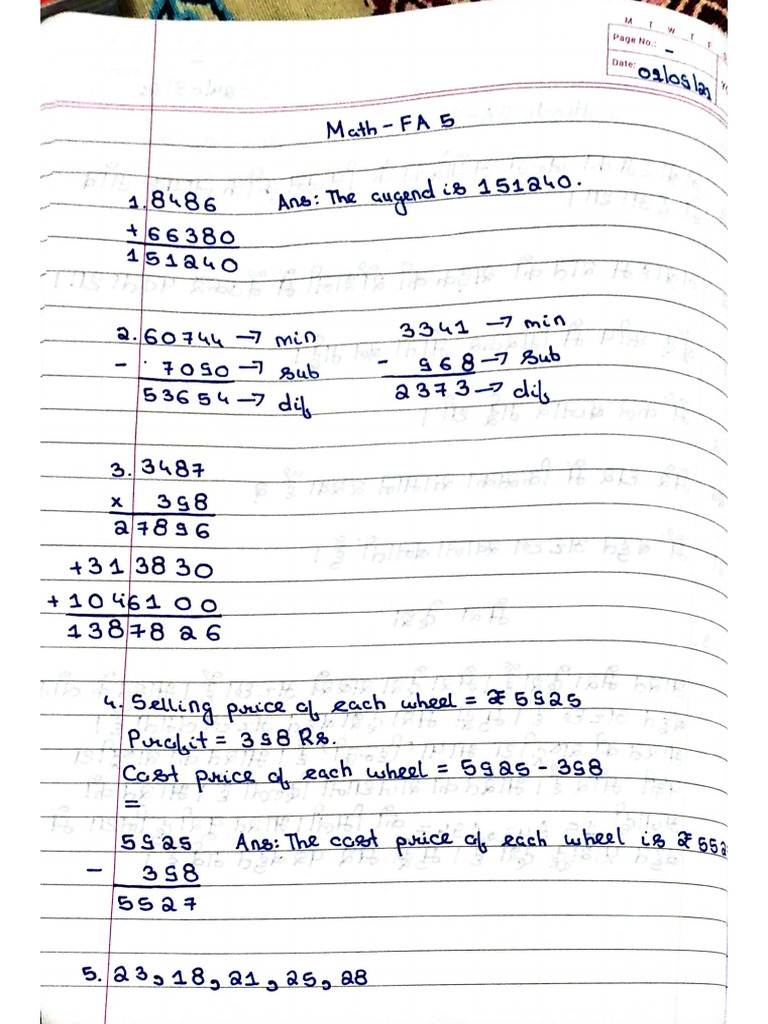 M T W T F S
Page No.: -
Date: 09/09/21
Math - FA 5
1. 8486 Ans: The augend is 151240.
+ 66380
151240
2. 60744 → min 3341 → min
- 7090 → sub - 968 → sub
53654 → dif 2373 → dif
3. 3487
x 398
27896
+313830
+1046100
1387826
4. Selling price of each wheel = ₹ 5925
Profit = 398 Rs.
Cost price of each wheel = 5925 - 398
=
5925 Ans: The cost price of each wheel is ₹ 552
- 398
5527
5. 23, 18, 21, 25, 28